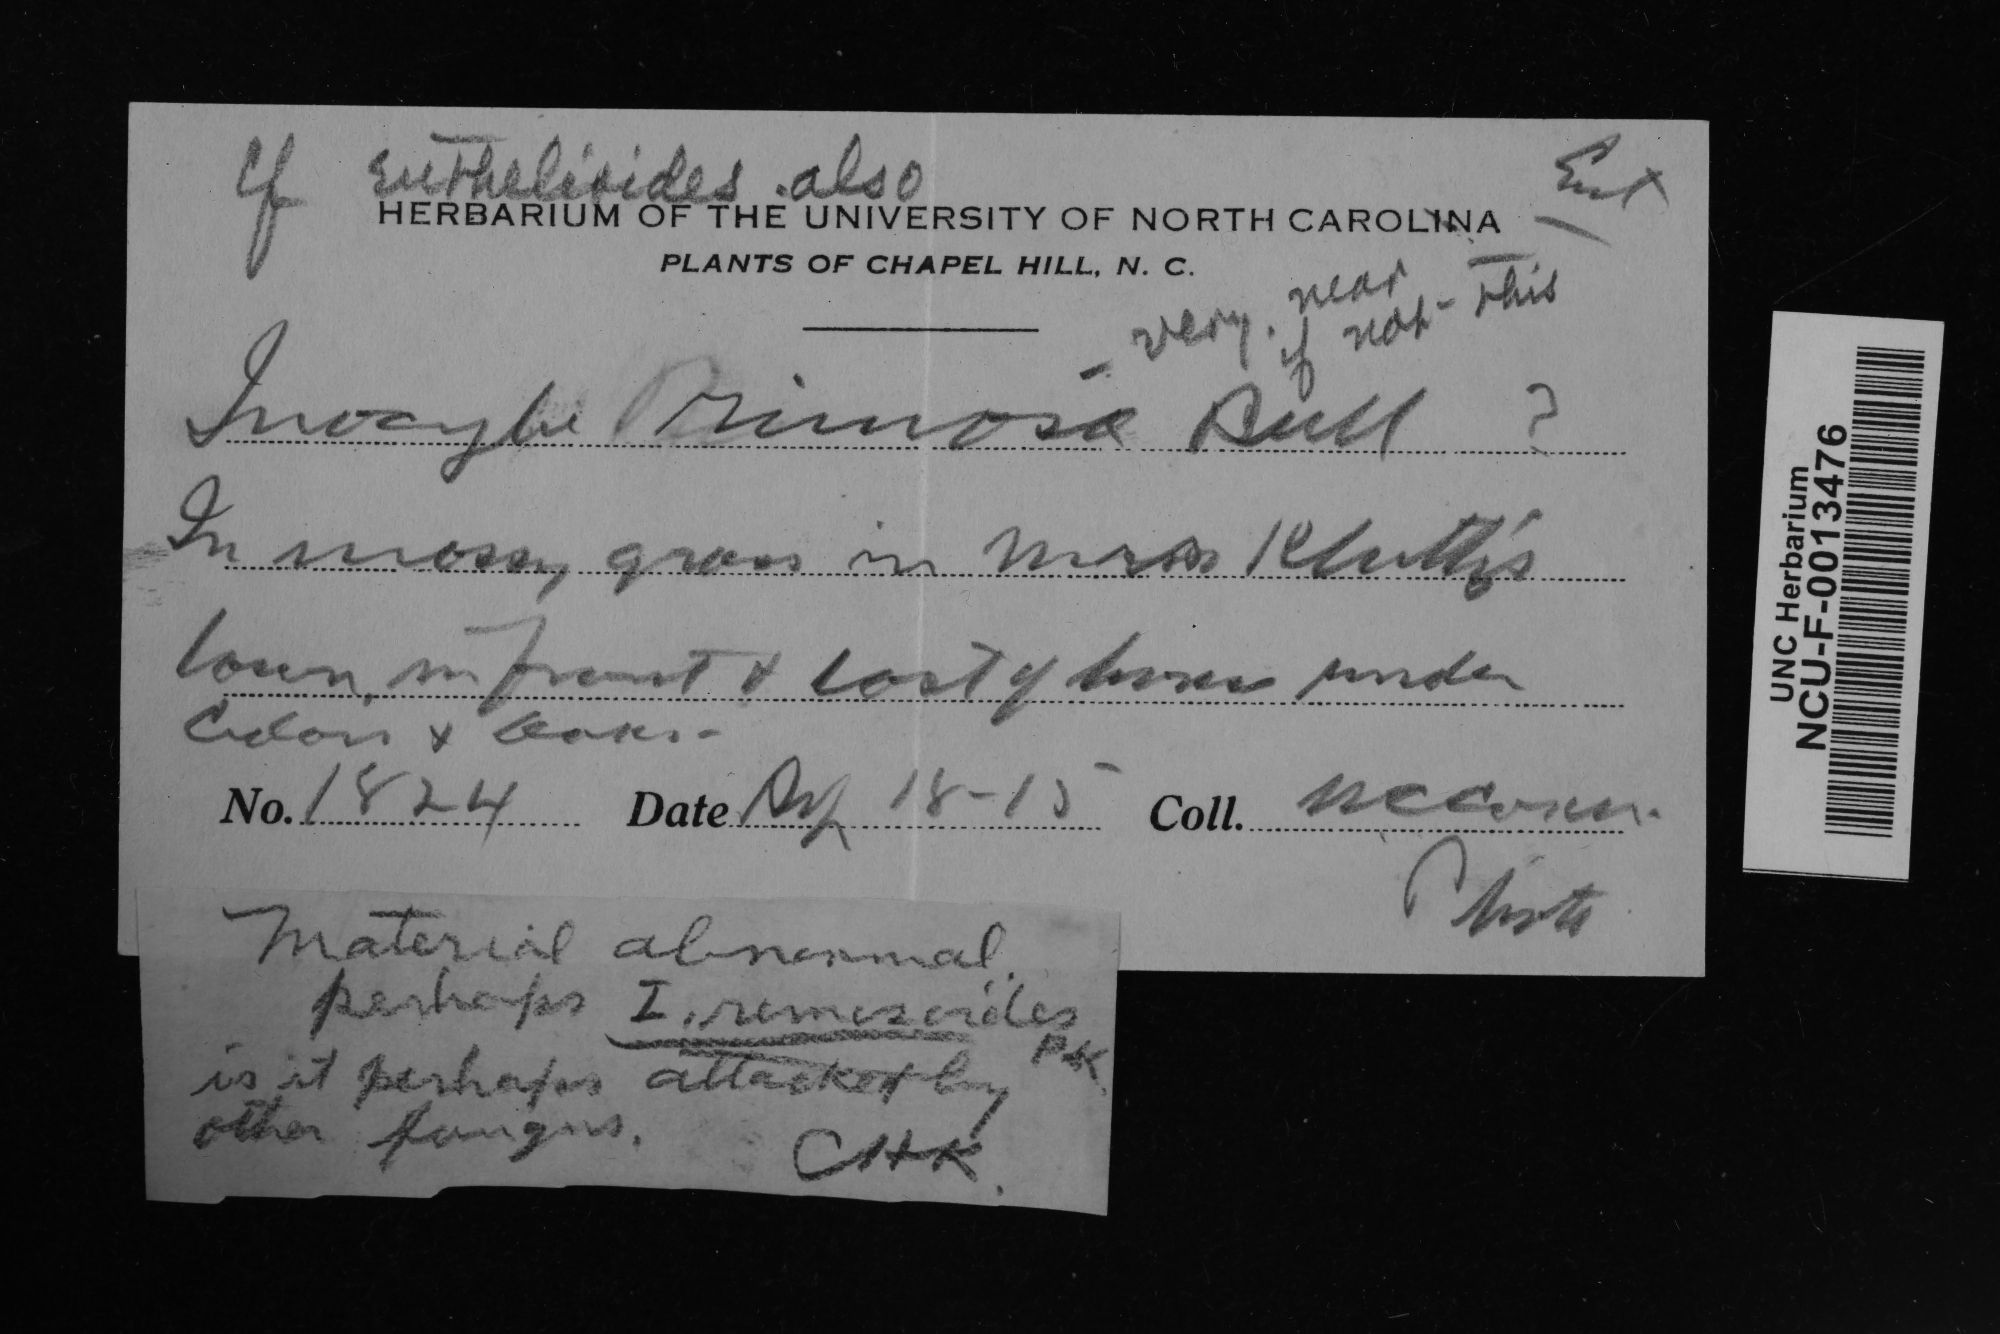 cf euthelioides also
Ext
HERBARIUM OF THE UNIVERSITY OF NORTH CAROLINA
PLANTS OF CHAPEL HILL, N. C.
- very near
if not this
Inocybe Rimosa Bull ?
In mossy grass in Mrs Kluttz's
lawn, in front & East of house under
Cedars & Oaks.
No. 1824 Date 18-15 Coll.
Photo
Material abnormal.
perhaps I. rimosoides
Pk.
is it perhaps attacked by
other fungus.
CHK.
UNC Herbarium
NCU-F-0013476